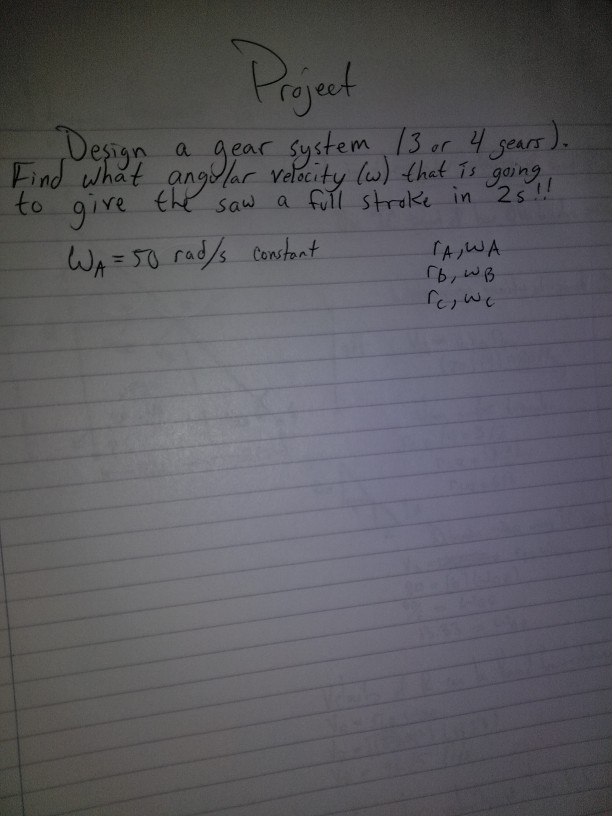 Project
Design a gear system (3 or 4 gears).
Find what angular velocity (ω) that is going
to give the saw a full stroke in 2s!!
ωA = 50 rad/s constant
rA, ωA
rb, ωB
rc, ωc